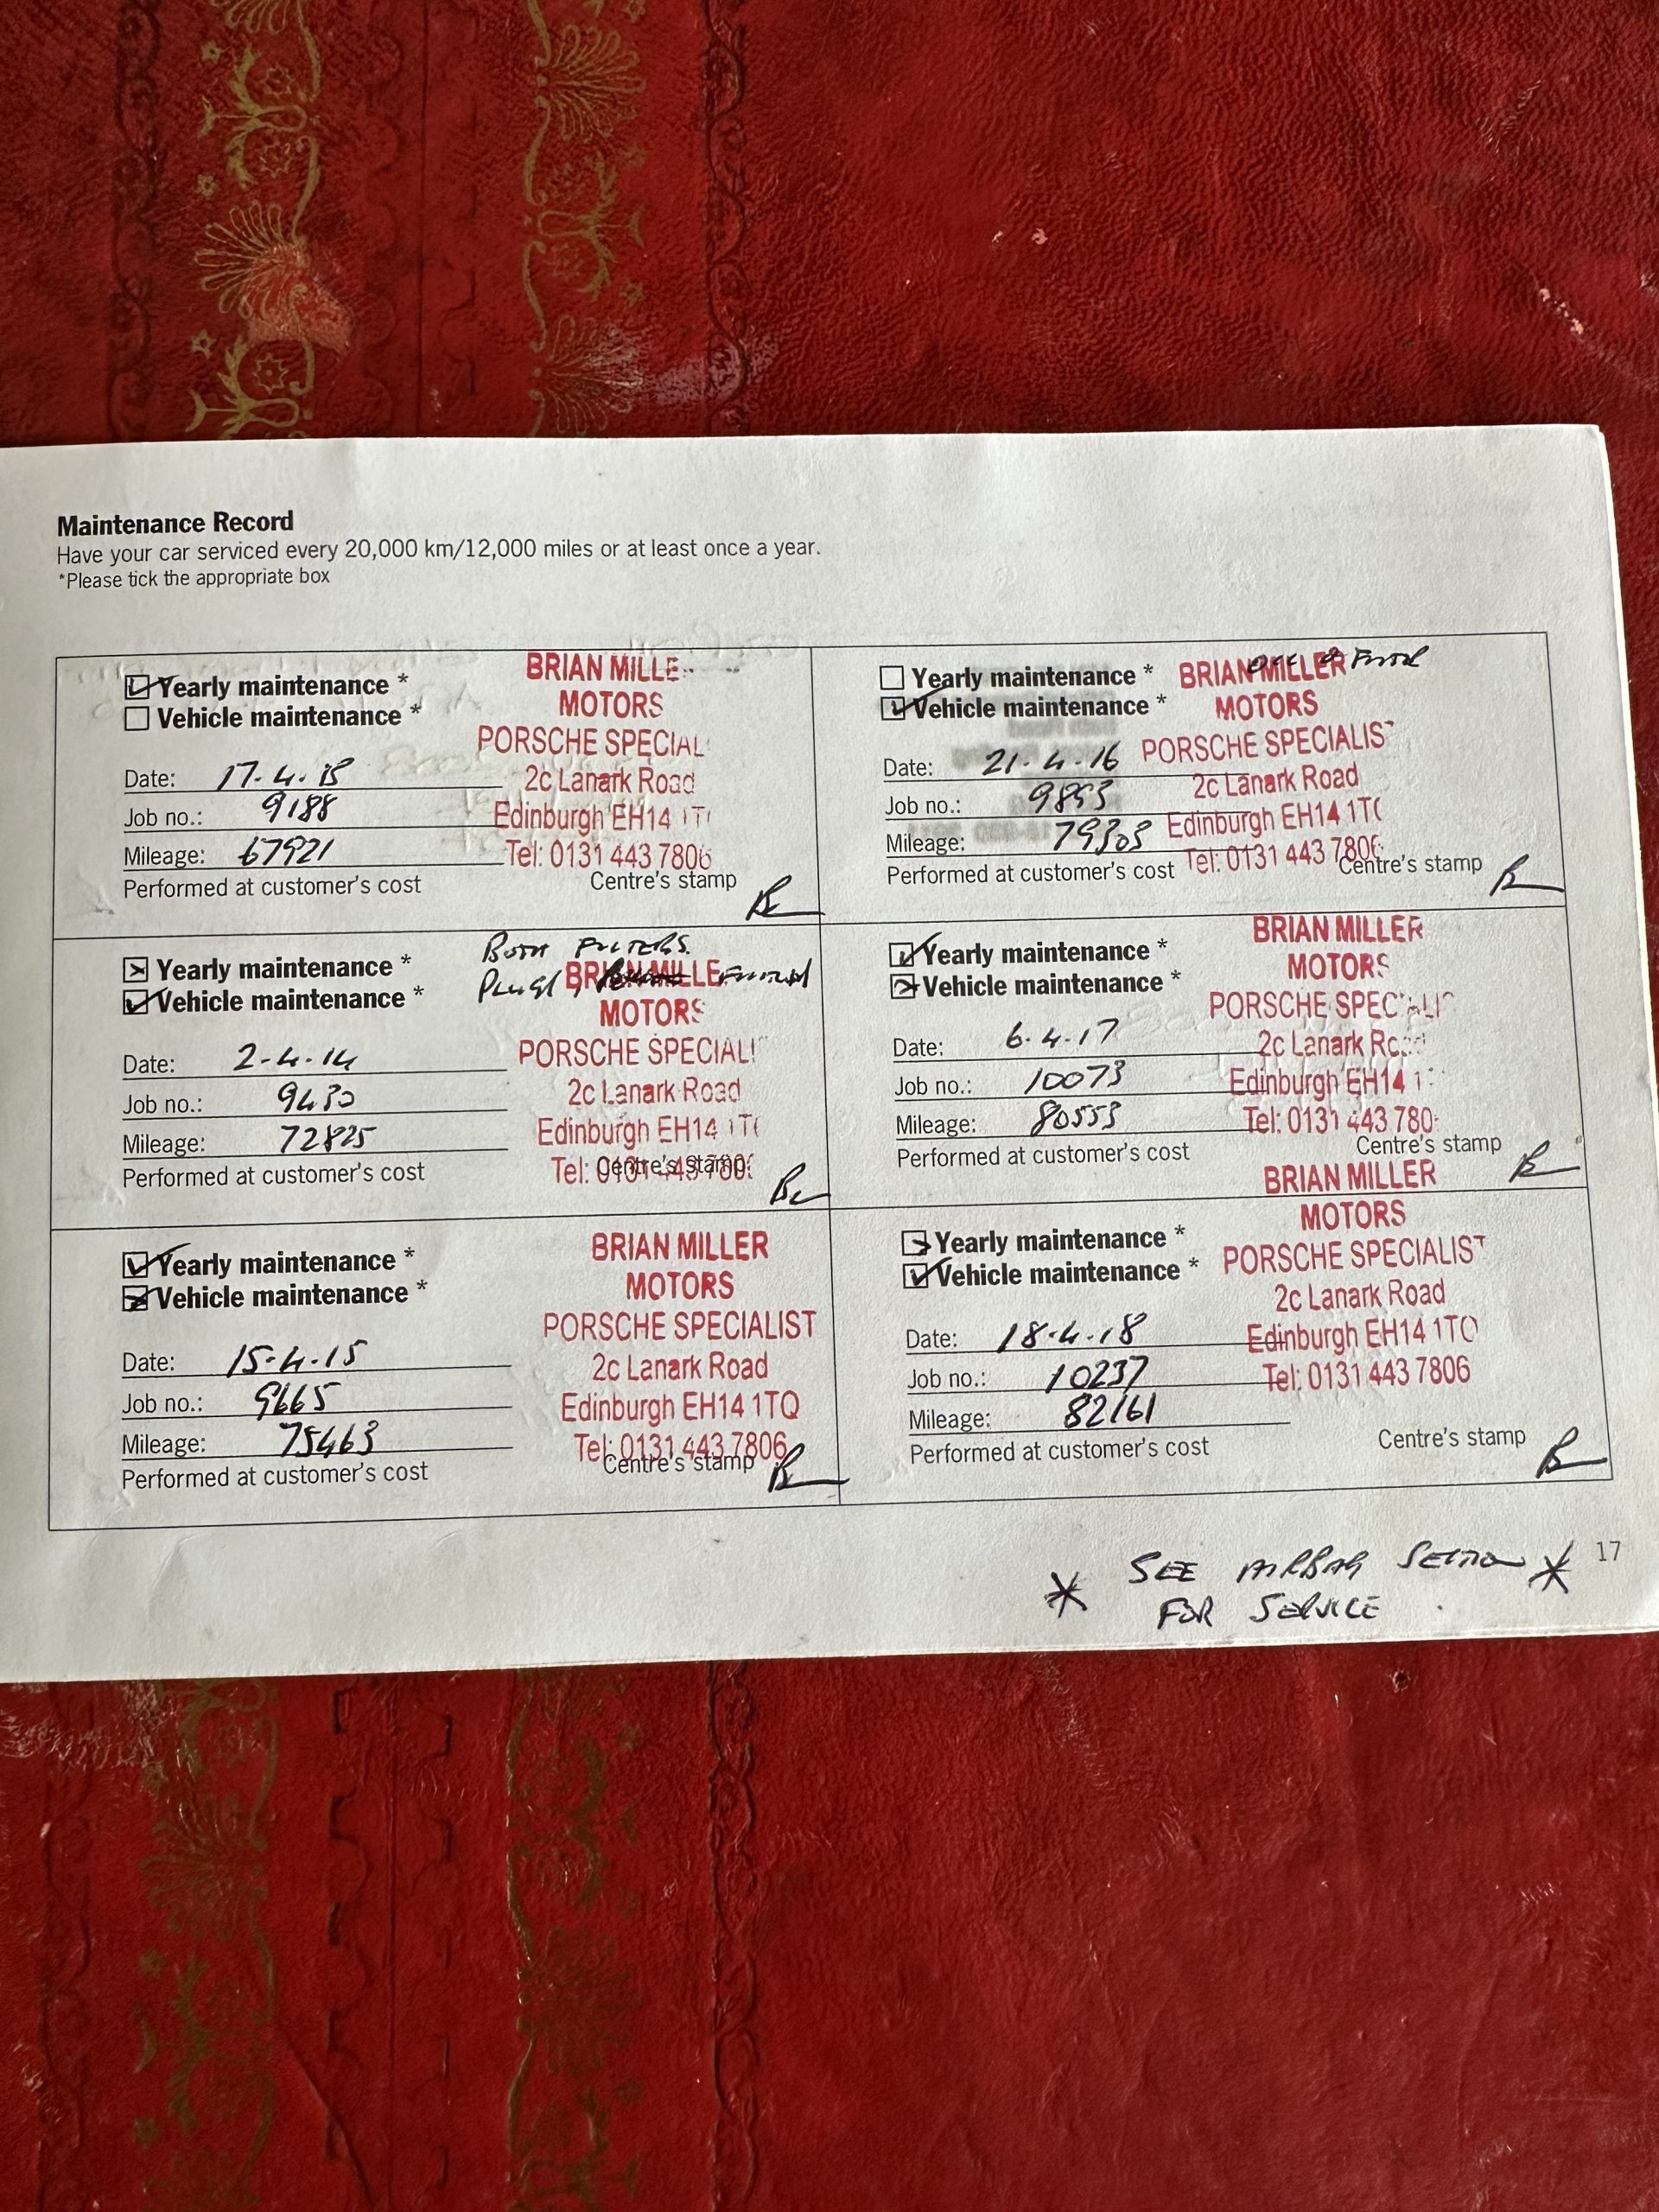 Maintenance Record
Have your car serviced every 20,000 km/12,000 miles or at least once a year.
*Please tick the appropriate box
Yearly maintenance *
Vehicle maintenance *
Date: 17.4.13
Job no.: 9188
Mileage: 67921
Performed at customer's cost
BRIAN MILLE
MOTORS
PORSCHE SPECIAL
2c Lanark Road
Edinburgh EH14 1T
Tel: 0131 443 7806
Centre's stamp
BOTH FILTERS.
PLUGS,
Yearly maintenance *
Vehicle maintenance *
Date: 2-4-14
Job no.: 9430
Mileage: 72825
Performed at customer's cost
BRIAN MILLE
MOTORS
PORSCHE SPECIALI
2c Lanark Road
Edinburgh EH14 1T
Tel: 0131 443 780
Centre's stamp
Yearly maintenance *
Vehicle maintenance *
Date: 15-4-15
Job no.: 9665
Mileage: 75463
Performed at customer's cost
BRIAN MILLER
MOTORS
PORSCHE SPECIALIST
2c Lanark Road
Edinburgh EH14 1TQ
Tel: 0131 443 7806
Centre's stamp
Yearly maintenance *
Vehicle maintenance *
Date: 21.4.16
Job no.: 9893
Mileage: 79303
Performed at customer's cost
BRIAN MILLER
MOTORS
PORSCHE SPECIALIST
2c Lanark Road
Edinburgh EH14 1TQ
Tel: 0131 443 7806
Centre's stamp
Yearly maintenance *
Vehicle maintenance *
Date: 6.4.17
Job no.: 10073
Mileage: 80553
Performed at customer's cost
BRIAN MILLER
MOTORS
PORSCHE SPECIALI
2c Lanark Road
Edinburgh EH14 1
Tel: 0131 443 780
Centre's stamp
Yearly maintenance *
Vehicle maintenance *
Date: 18.4.18
Job no.: 10237
Mileage: 82161
Performed at customer's cost
BRIAN MILLER
MOTORS
PORSCHE SPECIALIST
2c Lanark Road
Edinburgh EH14 1TQ
Tel: 0131 443 7806
Centre's stamp
17
* SEE AIRBAG SECTION *
FOR SERVICE